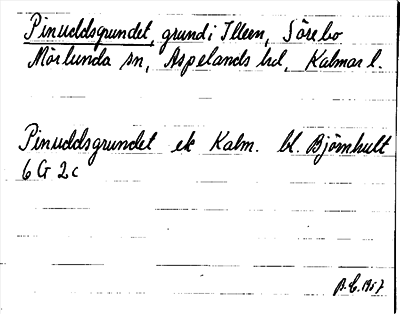 Pinuddsgrundet, grund i Illern, Sörebo
Mörlunda sn, Aspelands hd, Kalmar l.
Pinuddsgrundet ek Kalm. bl. Björnhult
6 G 2 c
1957